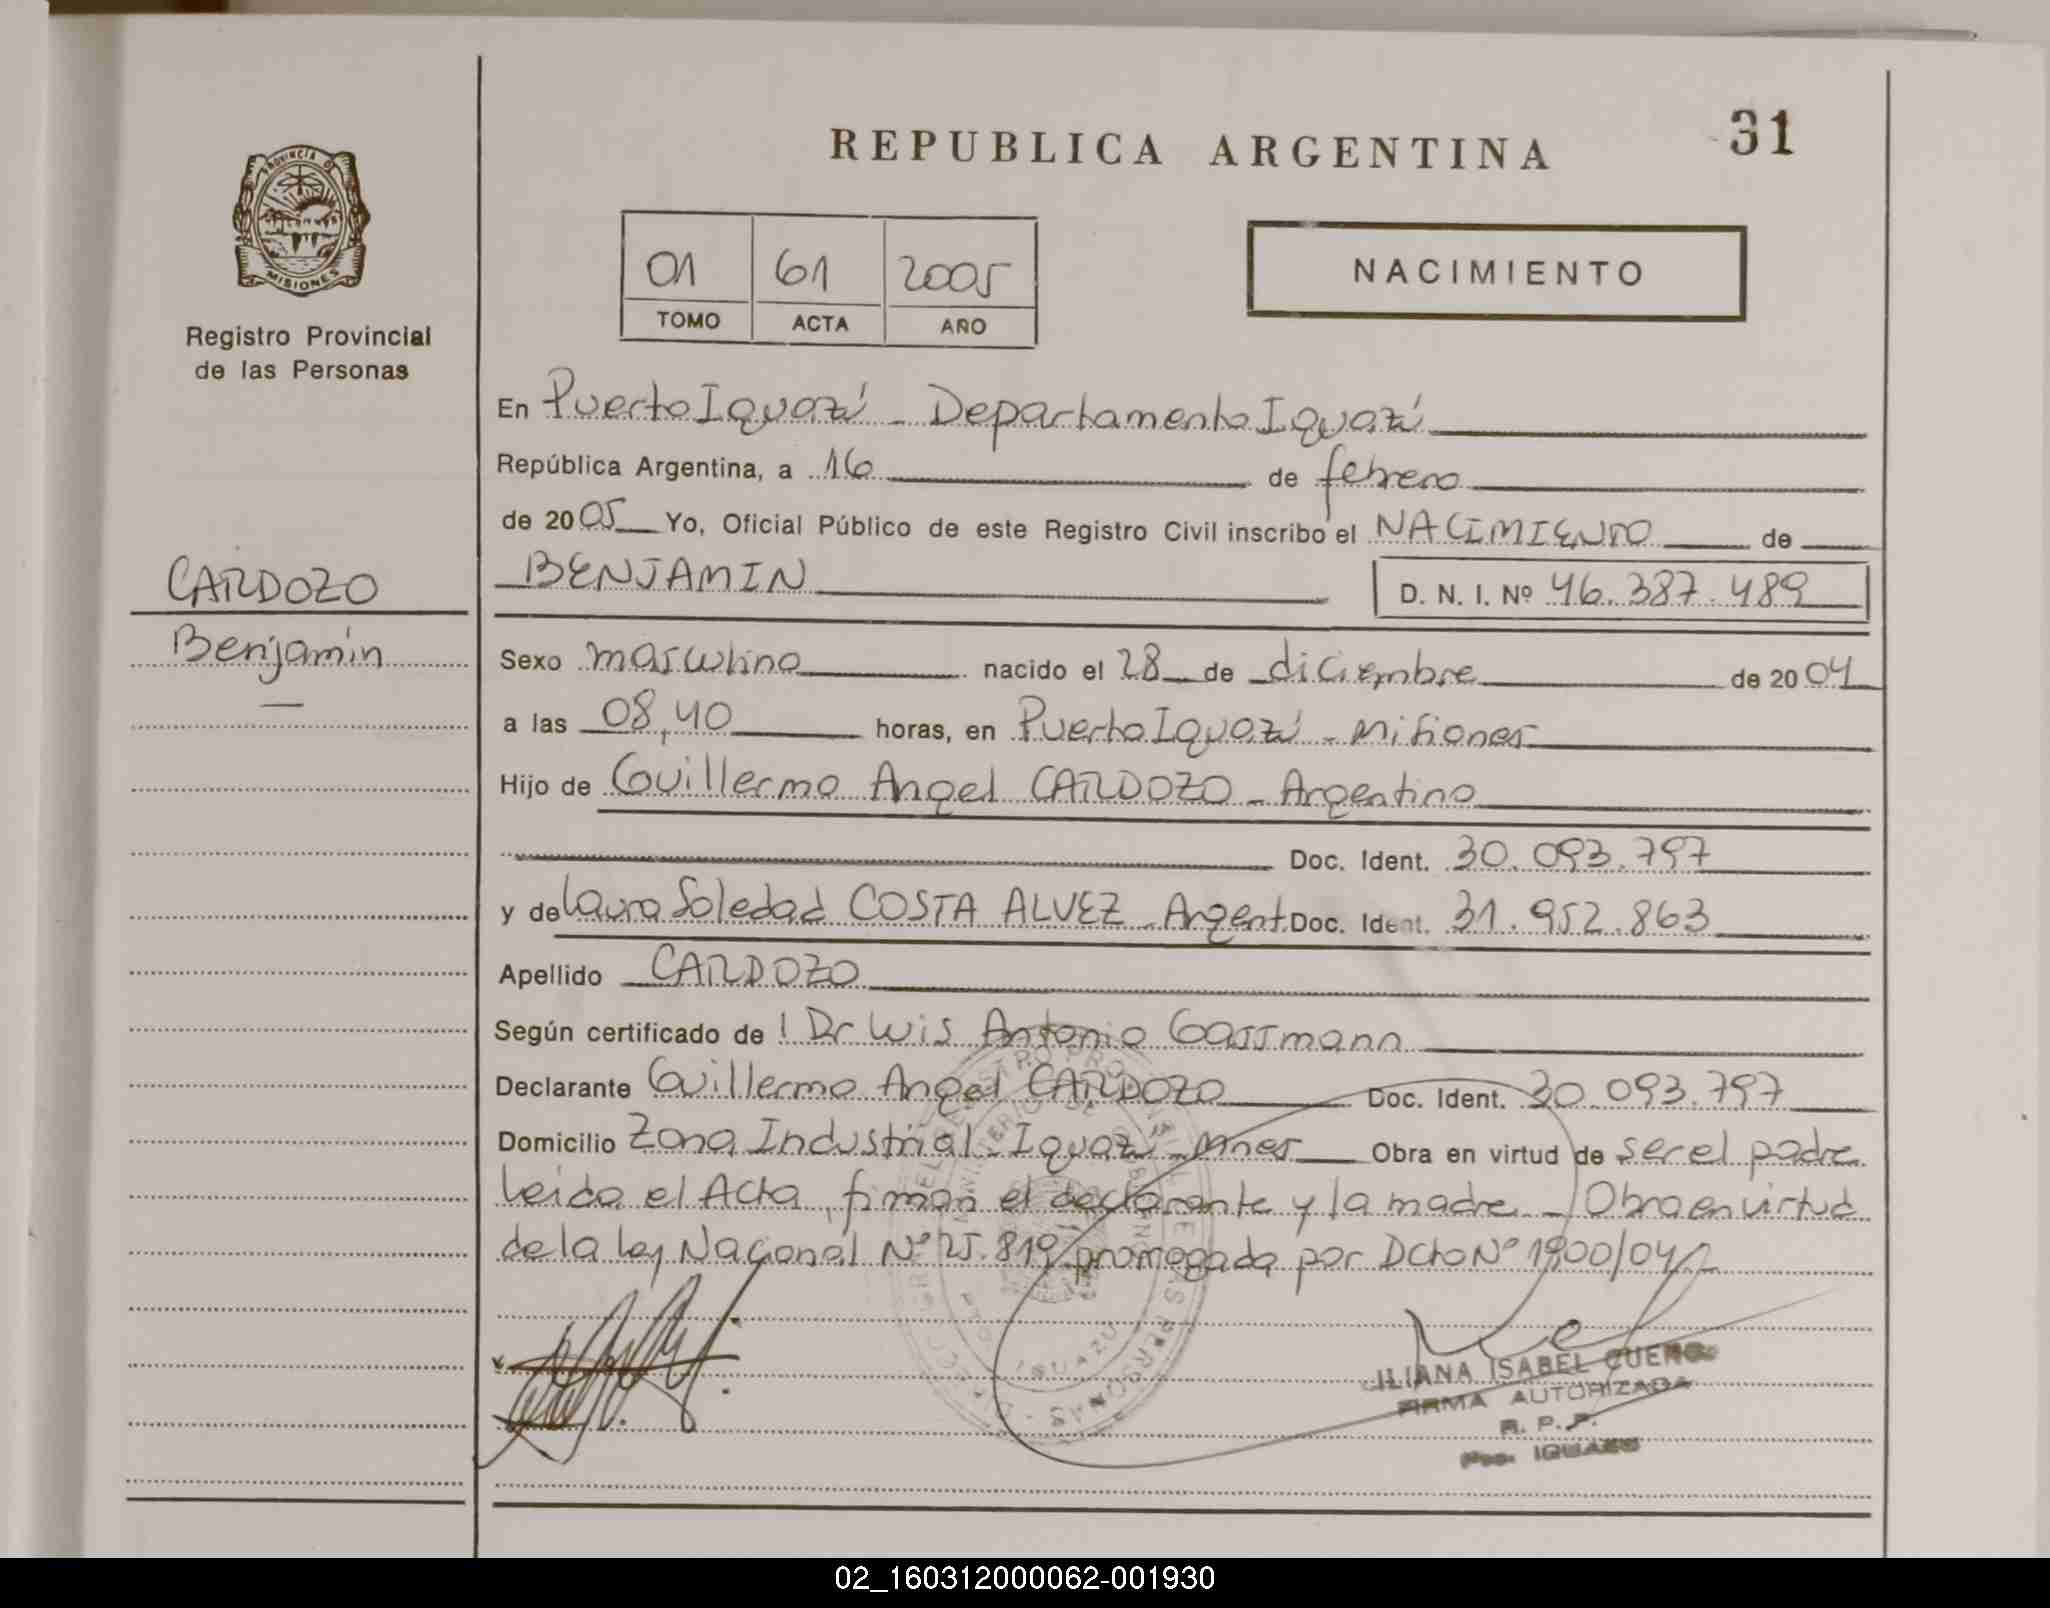 REPUBLICA ARGENTINA
31
PROVINCIA DE
MISIONES
Registro Provincial
de las Personas
01 61 2005
TOMO ACTA AÑO
NACIMIENTO
En Puerto Iguazú - Departamento Iguazú
República Argentina, a 16 de febrero
de 2005 Yo, Oficial Público de este Registro Civil inscribo el NACIMIENTO de
CARDOZO
Benjamín
BENJAMIN D. N. I. Nº 46.387.489
Sexo masculino nacido el 28 de diciembre de 2004
a las 08,40 horas, en Puerto Iguazú - Misiones
Hijo de Guillermo Angel CARDOZO - Argentino
Doc. Ident. 30.093.797
y de Laura Soledad COSTA ALVEZ - Argent. Doc. Ident. 31.952.863
Apellido CARDOZO
Según certificado de l Dr Luis Antonio Gassmann
Declarante Guillermo Angel CARDOZO Doc. Ident. 30.093.797
Domicilio Zona Industrial - Iguazú - Mnes Obra en virtud de ser el padre
Leida el Acta, firman el declarante y la madre - Obra en virtud
de la ley Nacional Nº 25.819 prorrogada por Dcto Nº 1900/04
PTO. IGUAZU
ILIANA ISABEL CUENO
FIRMA AUTORIZADA
R. P. P.
02_160312000062-001930